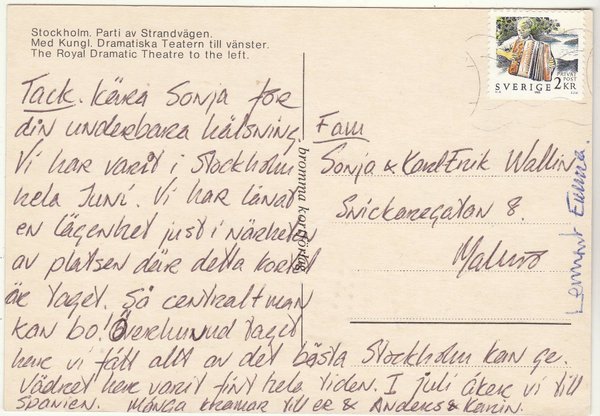 Stockholm. Parti av Strandvägen.
Med Kungl. Dramatiska Teatern till vänster.
The Royal Dramatic Theatre to the left.
PRIVAT
POST
SVERIGE 2KR
Tack. Kära Sonja för
din underbara hälsning
Vi har varit i Stockholm
hela Juni. Vi har lånat
en lägenhet just i närheten
av platsen där detta kortet
är taget. Så centralt man
kan bo! Överhuvud taget
har vi fått allt av det bästa Stockholm kan ge.
Vädret har varit fint hela tiden. I juli åker vi till
Spanien. Många kramar till er & Anders & Karin.
bromma kortförlag
Fam
Sonja & Karl-Erik Wallin
Snickaregatan 8.
Malmö
Lennart Eivina.